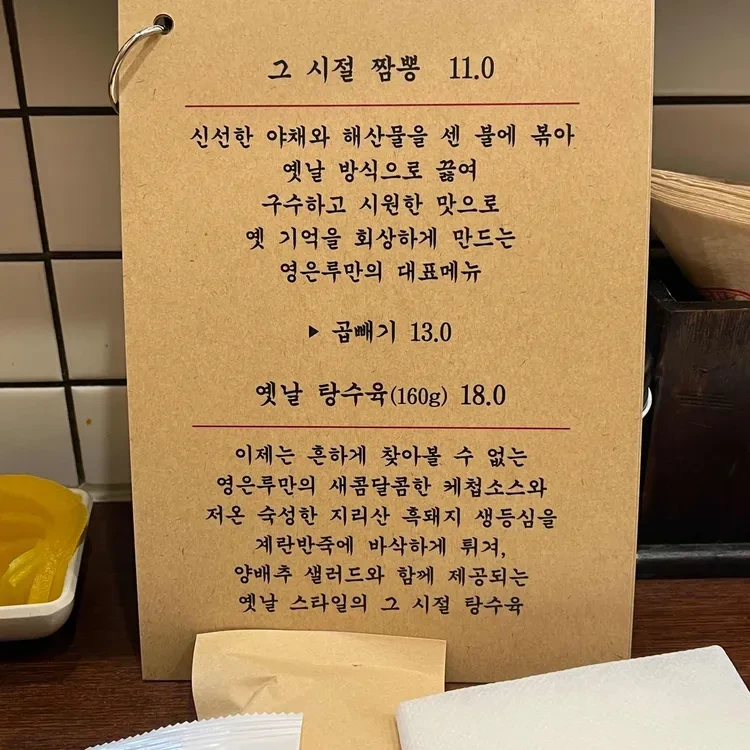 그 시절 짬뽕 11.0
신선한 야채와 해산물을 센 불에 볶아
옛날 방식으로 끓여
구수하고 시원한 맛으로
옛 기억을 회상하게 만드는
영은루만의 대표메뉴
▶ 곱빼기 13.0
옛날 탕수육(160g) 18.0
이제는 흔하게 찾아볼 수 없는
영은루만의 새콤달콤한 케첩소스와
저온 숙성한 지리산 흑돼지 생등심을
계란반죽에 바삭하게 튀겨,
양배추 샐러드와 함께 제공되는
옛날 스타일의 그 시절 탕수육